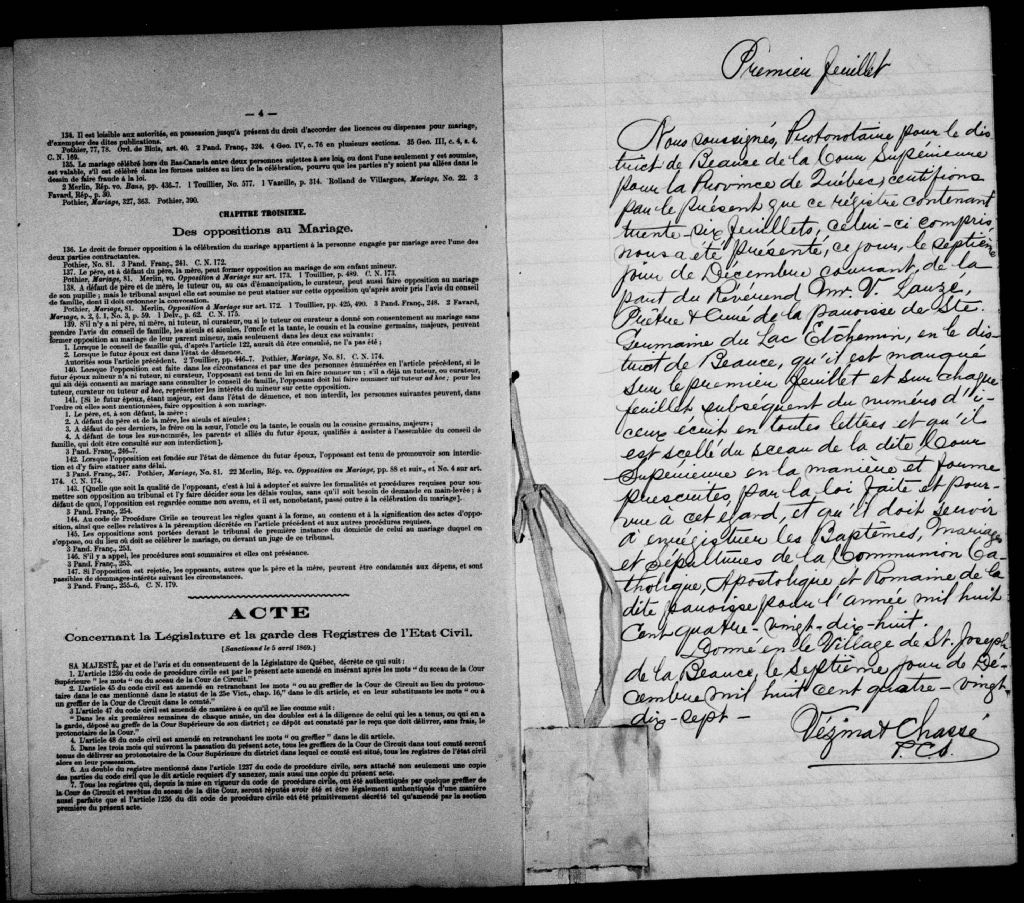 — 4 —
134. Il est loisible aux autorités, en possession jusqu'à présent du droit d'accorder des licences ou dispenses pour mariage,
d'exempter des dites publications.
Pothier, 77, 78. Ord. de Blois, art. 40. 2 Pand. Franç., 324. 4 Geo. IV, c. 76 en plusieurs sections. 35 Geo. III, c. 4, s. 4.
C. N. 169.
135. Le mariage célébré hors du Bas-Canada entre deux personnes sujettes à ses lois, ou dont l'une seulement y est soumise,
est valable, s'il est célébré dans les formes usitées au lieu de la célébration, pourvu que les parties n'y soient pas allées dans le
dessin de faire fraude à la loi.
2 Merlin, Rép. vo. Bans, pp. 436-7. 1 Touillier, No. 577. 1 Vazeille, p. 314. Rolland de Villargues, Mariage, No. 22. 3
Favard, Rép., p. 30.
Pothier, Mariage, 327, 363. Pothier, 390.
CHAPITRE TROISIEME.
Des oppositions au Mariage.
136. Le droit de former opposition à la célébration du mariage appartient à la personne engagée par mariage avec l'une des
deux parties contractantes.
Pothier, No. 81. 3 Pand. Franç., 241. C. N. 172.
137. Le père, et à défaut du père, la mère, peut former opposition au mariage de son enfant mineur.
Pothier, Mariage, 81. Merlin, vo. Opposition à Mariage sur art. 173. 1 Touillier, p. 489. C. N. 173.
138. A défaut de père et de mère, le tuteur ou, au cas d'émancipation, le curateur, peut aussi faire opposition au mariage
de son pupille; mais le tribunal auquel elle est soumise ne peut statuer sur cette opposition qu'après avoir pris l'avis du conseil
de famille, dont il doit ordonner la convocation.
Pothier, Mariage, 81. Merlin, Opposition à Mariage sur art. 172. 1 Touillier, pp. 425, 490. 3 Pand. Franç., 248. 2 Favard,
Mariage, s. 2, § 1, No. 3, p. 59. 1 Delv., p. 62. C. N. 175.
139. S'il n'y a ni père, ni mère, ni tuteur, ni curateur, ou si le tuteur ou curateur a donné son consentement au mariage sans
prendre l'avis du conseil de famille, les aïeuls et aïeules, l'oncle et la tante, le cousin et la cousine germains, majeurs, peuvent
former opposition au mariage de leur parent mineur, mais seulement dans les deux cas suivants:
1. Lorsque le conseil de famille qui, d'après l'article 122, aurait dû être consulté, ne l'a pas été;
2. Lorsque le futur époux est dans l'état de démence.
Autorités sous l'article précédent. 2 Touillier, pp. 446-7. Pothier, Mariage, No. 81. C. N. 174.
140. Lorsque l'opposition est faite dans les circonstances et par une des personnes énumérées en l'article précédent, si le
futur époux mineur n'a ni tuteur, ni curateur, l'opposant est tenu de lui en faire nommer un; s'il a déjà un tuteur, ou curateur,
qui ait déjà consenti au mariage sans consulter le conseil de famille, l'opposant doit lui faire nommer un tuteur ad hoc; pour les
tuteur, curateur ou tuteur ad hoc, représenter les intérêts du mineur sur cette opposition.
141. [Si le futur époux, étant majeur, est dans l'état de démence, et non interdit, les personnes suivantes peuvent, dans
l'ordre où elles sont mentionnées, faire opposition à son mariage.
1. Le père, et, à son défaut, la mère;
2. A défaut du père et de la mère, les aïeuls et aïeules;
3. A défaut de ces derniers, le frère ou la sœur, l'oncle ou la tante, le cousin ou la cousine germains, majeurs;
4. A défaut de tous les sus-nommés, les parents et alliés du futur époux, qualifiés à assister à l'assemblée du conseil de
famille, qui doit être consulté sur son interdiction].
3 Pand. Franç., 246-7.
142. Lorsque l'opposition est fondée sur l'état de démence du futur époux, l'opposant est tenu de promouvoir son interdic-
tion et d'y faire statuer sans délai.
3 Pand. Franç., 247. Pothier, Mariage, No. 81. 22 Merlin, Rép. vo. Opposition au Mariage, pp. 88 et suiv., et No. 4 sur art.
174. C. N. 174.
143. [Quelle que soit la qualité de l'opposant, c'est à lui à adopter et suivre les formalités et procédures requises pour sou-
mettre son opposition au tribunal et l'y faire décider sous les délais voulus, sans qu'il soit besoin de demande en main-levée; à
défaut de quoi, l'opposition est regardée comme non avenu, et il est, nonobstant, passé outre à la célébration du mariage].
3 Pand. Franç., 254.
144. Au code de Procédure Civile se trouvent les règles quant à la forme, au contenu et à la signification des actes d'oppo-
sition, ainsi que celles relatives à la péremption décrétée en l'article précédent et aux autres procédures requises.
145. Les oppositions sont portées devant le tribunal de première instance du domicile de celui au mariage duquel on
s'oppose, ou du lieu où doit se célébrer le mariage, ou devant un juge de ce tribunal.
3 Pand. Franç., 253.
146. S'il y a appel, les procédures sont sommaires et elles ont préséance.
3 Pand. Franç., 253.
147. Si l'opposition est rejetée, les opposants, autres que le père et la mère, peuvent être condamnés aux dépens, et sont
passibles de dommages-intérêts suivant les circonstances.
3 Pand. Franç., 255-6. C. N. 179.
ACTE
Concernant la Législature et la garde des Registres de l'Etat Civil.
[Sanctionné le 5 avril 1869.]
SA MAJESTÉ, par et de l'avis et du consentement de la Législature de Québec, décrète ce qui suit:
1. L'article 1236 du code de procédure civile est par le présent acte amendé en insérant après les mots "du sceau de la Cour
Supérieure" les mots "ou du sceau de la Cour de Circuit."
2. L'article 45 du code civil est amendé en retranchant les mots "ou au greffier de la Cour de Circuit au lieu du protono-
taire dans le cas mentionné dans le statut de la 25e Vict., chap. 16," dans le dit article, et en leur substituants les mots "ou à
un greffier de la Cour de Circuit dans le comté."
3 L'article 47 du code civil est amendé de manière à ce qu'il se lise comme suit:
"Dans les six premières semaines de chaque année, un des doubles est à la diligence de celui qui les a tenus, ou qui en a
la garde, déposé au greffe de la Cour Supérieure de son district; ce dépôt est constaté par le reçu que doit délivrer, sans frais, le
protonotaire de la Cour."
4. L'article 48 du code civil est amendé en retranchant les mots "ou greffier" dans le dit article.
5. Dans les trois mois qui suivront la passation du présent acte, tous les greffiers de la Cour de Circuit dans tout comté seront
tenus de délivrer au protonotaire de la Cour Supérieure du district dans lequel ce comté est situé, tous les registres de l'état civil
alors en leur possession.
6. Au double du registre mentionné dans l'article 1237 du code de procédure civile, sera attaché non seulement une copie
des parties du code civil que le dit article requiert d'y annexer, mais aussi une copie du présent acte.
7. Tous les registres qui, depuis la mise en vigueur du code de procédure civile, ont été authentiqués par quelque greffier de
la Cour de Circuit et revêtus du sceau de la dite Cour, seront réputés avoir été et être légalement authentiqués d'une manière
aussi parfaite que si l'article 1236 du dit code de procédure civile eût été primitivement décrété tel qu'amendé par la section
première du présent acte.
Premier feuillet
Nous soussignés, Protonotaire pour le dis-
trict de Beauce de la Cour Supérieure
pour la Province de Québec, certifions
par le présent que ce régistre contenant
trente-six feuillets, celui-ci compris
nous a été présenté, ce jour, le septième
jour de Décembre courant, de la
part du Révérend Mr. V. Lauzé,
Prêtre & Curé de la paroisse de Ste.
Germaine du Lac Etchemin, en le dis-
trict de Beauce, qu'il est marqué
sur le premier feuillet et sur chaque
feuillet subséquent du numéro d'i-
ceux écrit en toutes lettres et qu'il
est scellé du sceau de la dite Cour
Supérieure en la manière et forme
prescrites, par la loi faite et pour-
vue à cet égard, et qu'il doit servir
à enregistrer les Baptêmes, Mariages
et Sépultures de la Communion Ca-
tholique, Apostolique et Romaine de la
dite paroisse pour l'année mil huit
cent quatre-vingt-dix-huit.
Donné en le Village de St. Joseph
de la Beauce, le septième jour de Dé-
cembre mil huit cent quatre-vingt-
dix-sept —
Vézina & Chassé
P. C. S.